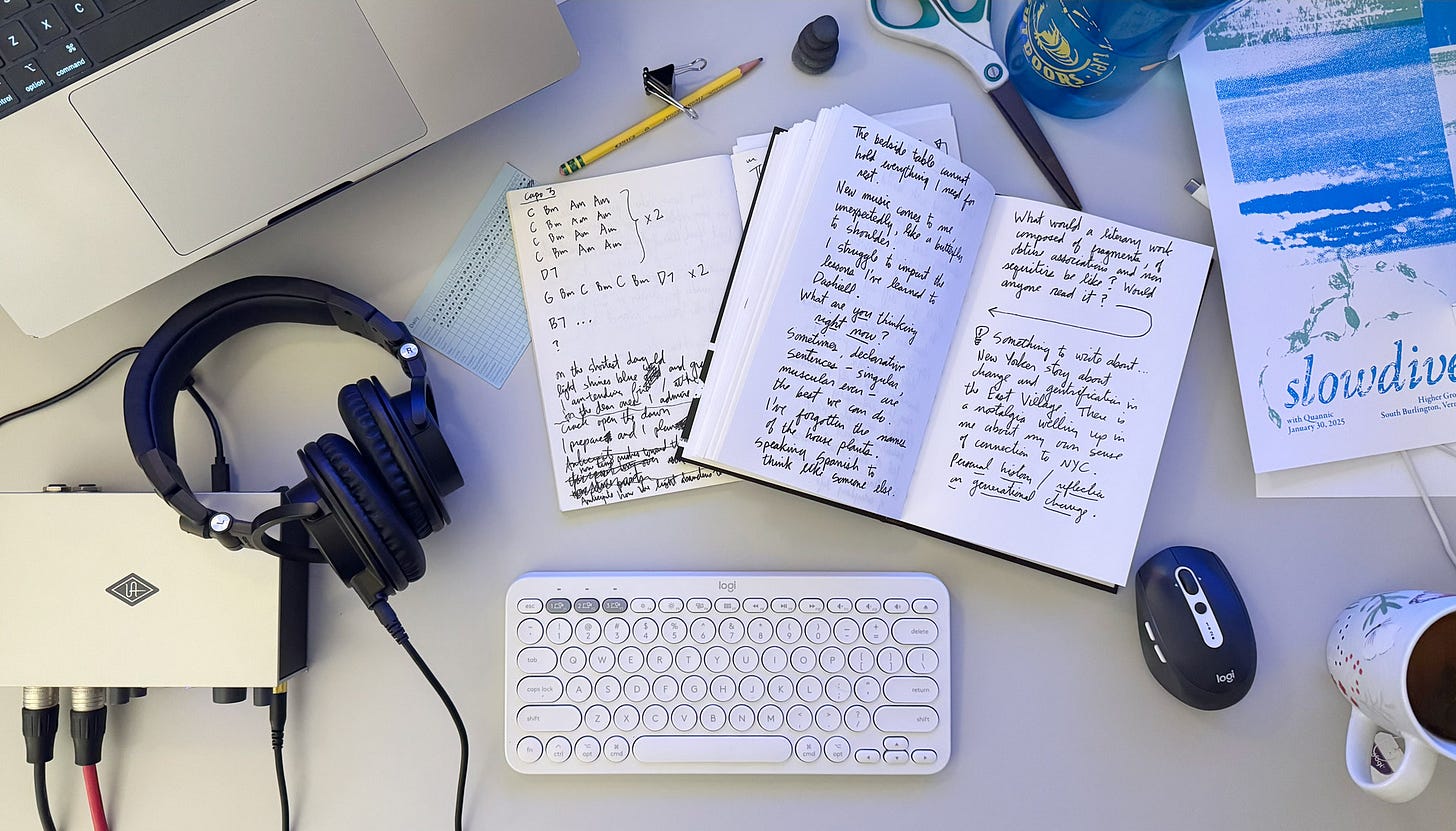 Z X C
control option command
⌘
DOORS
Capo 3
C Bm Am Am
C Bm Am Am
C Bm Am Am
C Bm Am Am
x2
D7
G Bm C Bm C Bm D7 x2
B7 ...
?
on the shortest day
light shines blue
I am
in the
crack open the dawn
I prepare and I
The bedside table cannot
hold everything I need for
rest.
New music comes to me
unexpectedly, like a butterfly
to shoulder.
I struggle to impart the
lessons I've learned to
Dashiell.
What are you thinking
right now?
Sometimes, declarative
sentences – singular,
muscular even – are
the best we can do.
I've forgotten the names
of the house plants.
Speaking Spanish to
think like someone else.
What would a literary work
composed of fragments of
obtuse associations and non
sequitirs be like? Would
anyone read it?
Something to write about...
New Yorker story about
change and gentrification in
the East Village. There is
a nostalgia welling up in
me about my own sense
of connection to NYC.
Personal history / reflection
on generational change.
slowdive
with Quannic
January 30, 2025
Higher Gro
South Burlington, Ver
R
L
UA
logi
esc 1 2 3
~ ! @ # $ % ^ & * ( ) _ +
\` 1 2 3 4 5 6 7 8 9 0 - = delete
tab Q W E R T Y U I O P { [ } ] | \
caps lock A S D F G H J K L : ; " ' return
shift Z X C V B N M < , > . ? / shift
fn ctrl opt cmd cmd opt
logi